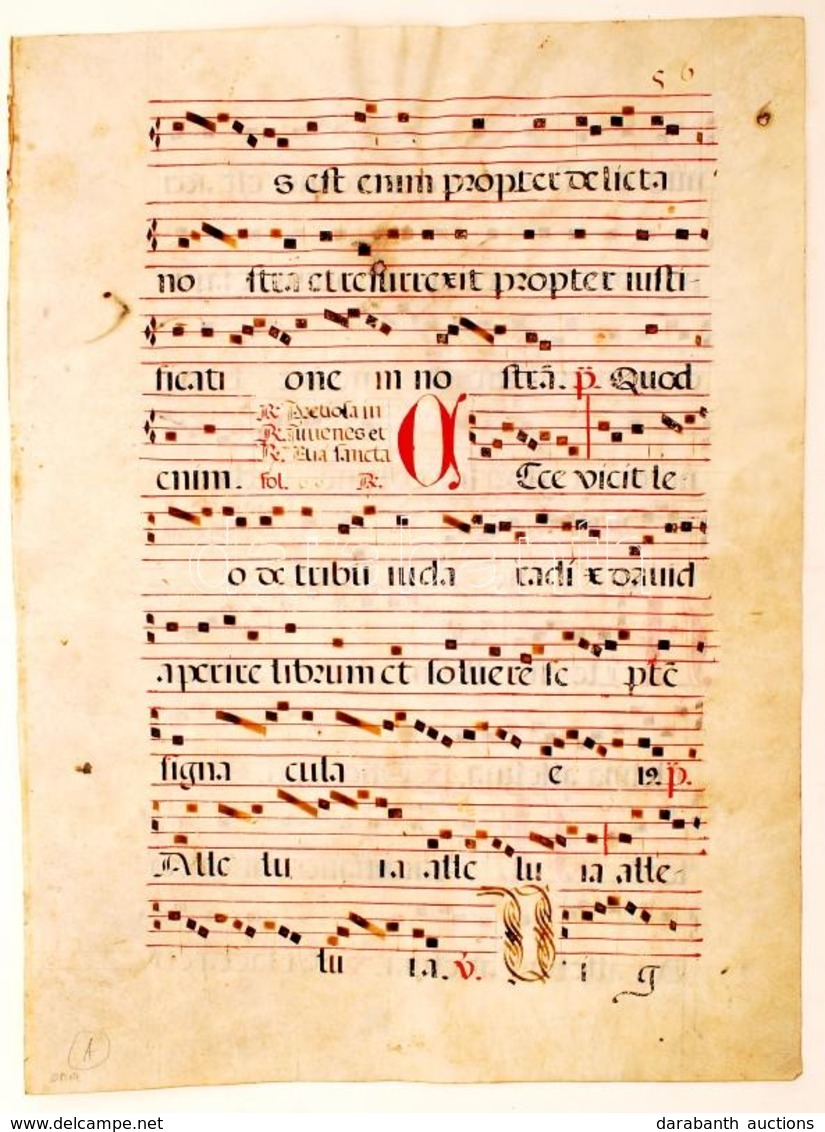 56
s est enim propter delicta
no stra et resurrexit propter iusti-
ficati one m no strā. p̄. Quod
R. Pretiosa in
R. Iuuenes et
R. Ista sancta
enim. fol. R. Ecce vicit le-
o de tribu iuda radi x dauid
aperire librum et soluere se ptē
signa cula e is p̄.
Alle lu ia alle lu ia alle-
lu ia. v. D i g
A
darabanth
www.delcampe.net
darabanth auctions